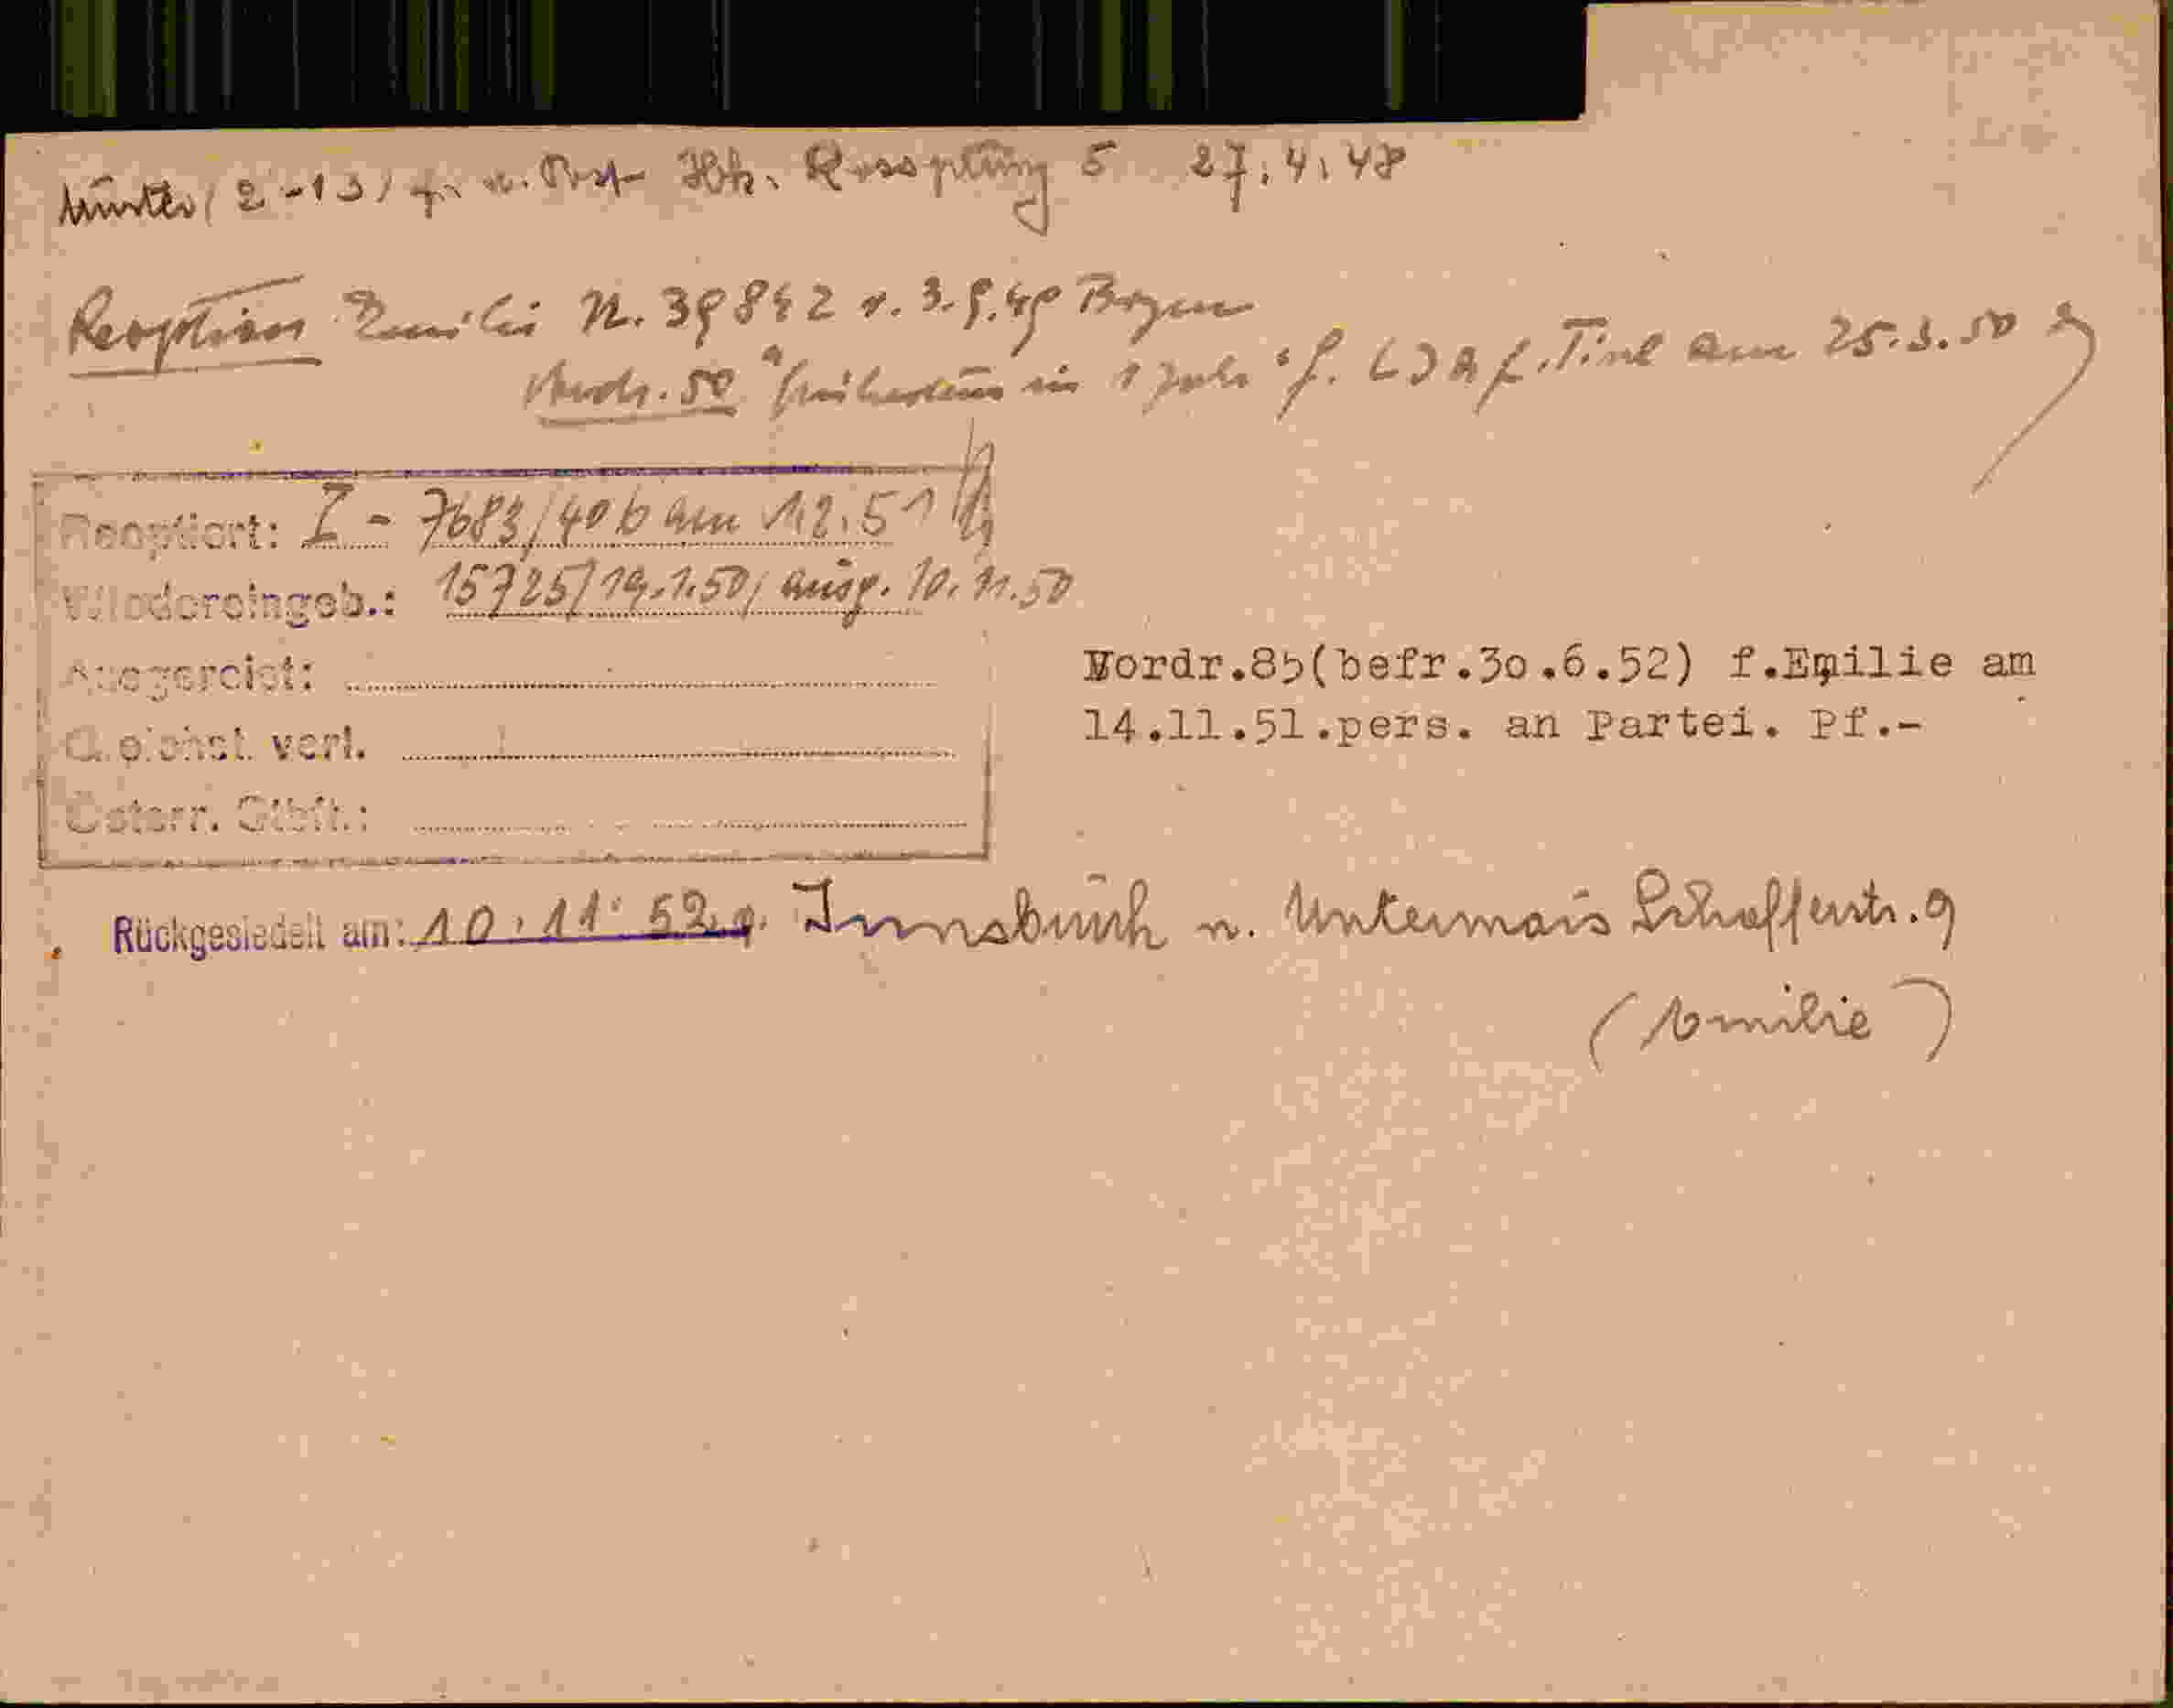 (2-13) 5 27.4.48
Reoption Emilie N. 39842 v. 3.9.49 Bozen
Vordr. 50 "frühestens in 1 Jahr" f. am 25.3.50
Reoptiert: I - 7683/40b am 1.2.51
Wiedereingeb.: 15725/19.1.50, ausg. 10.11.50
Ausgereist:
Gleichst. verl.
Österr. Stbft.:
Vordr.85(befr.30.6.52) f.Emilie am
14.11.51.pers. an Partei. Pf.-
Rückgesiedelt am: 10.11.52 Innsbruck n. Untermais Schafferstr. 9
(Emilie)